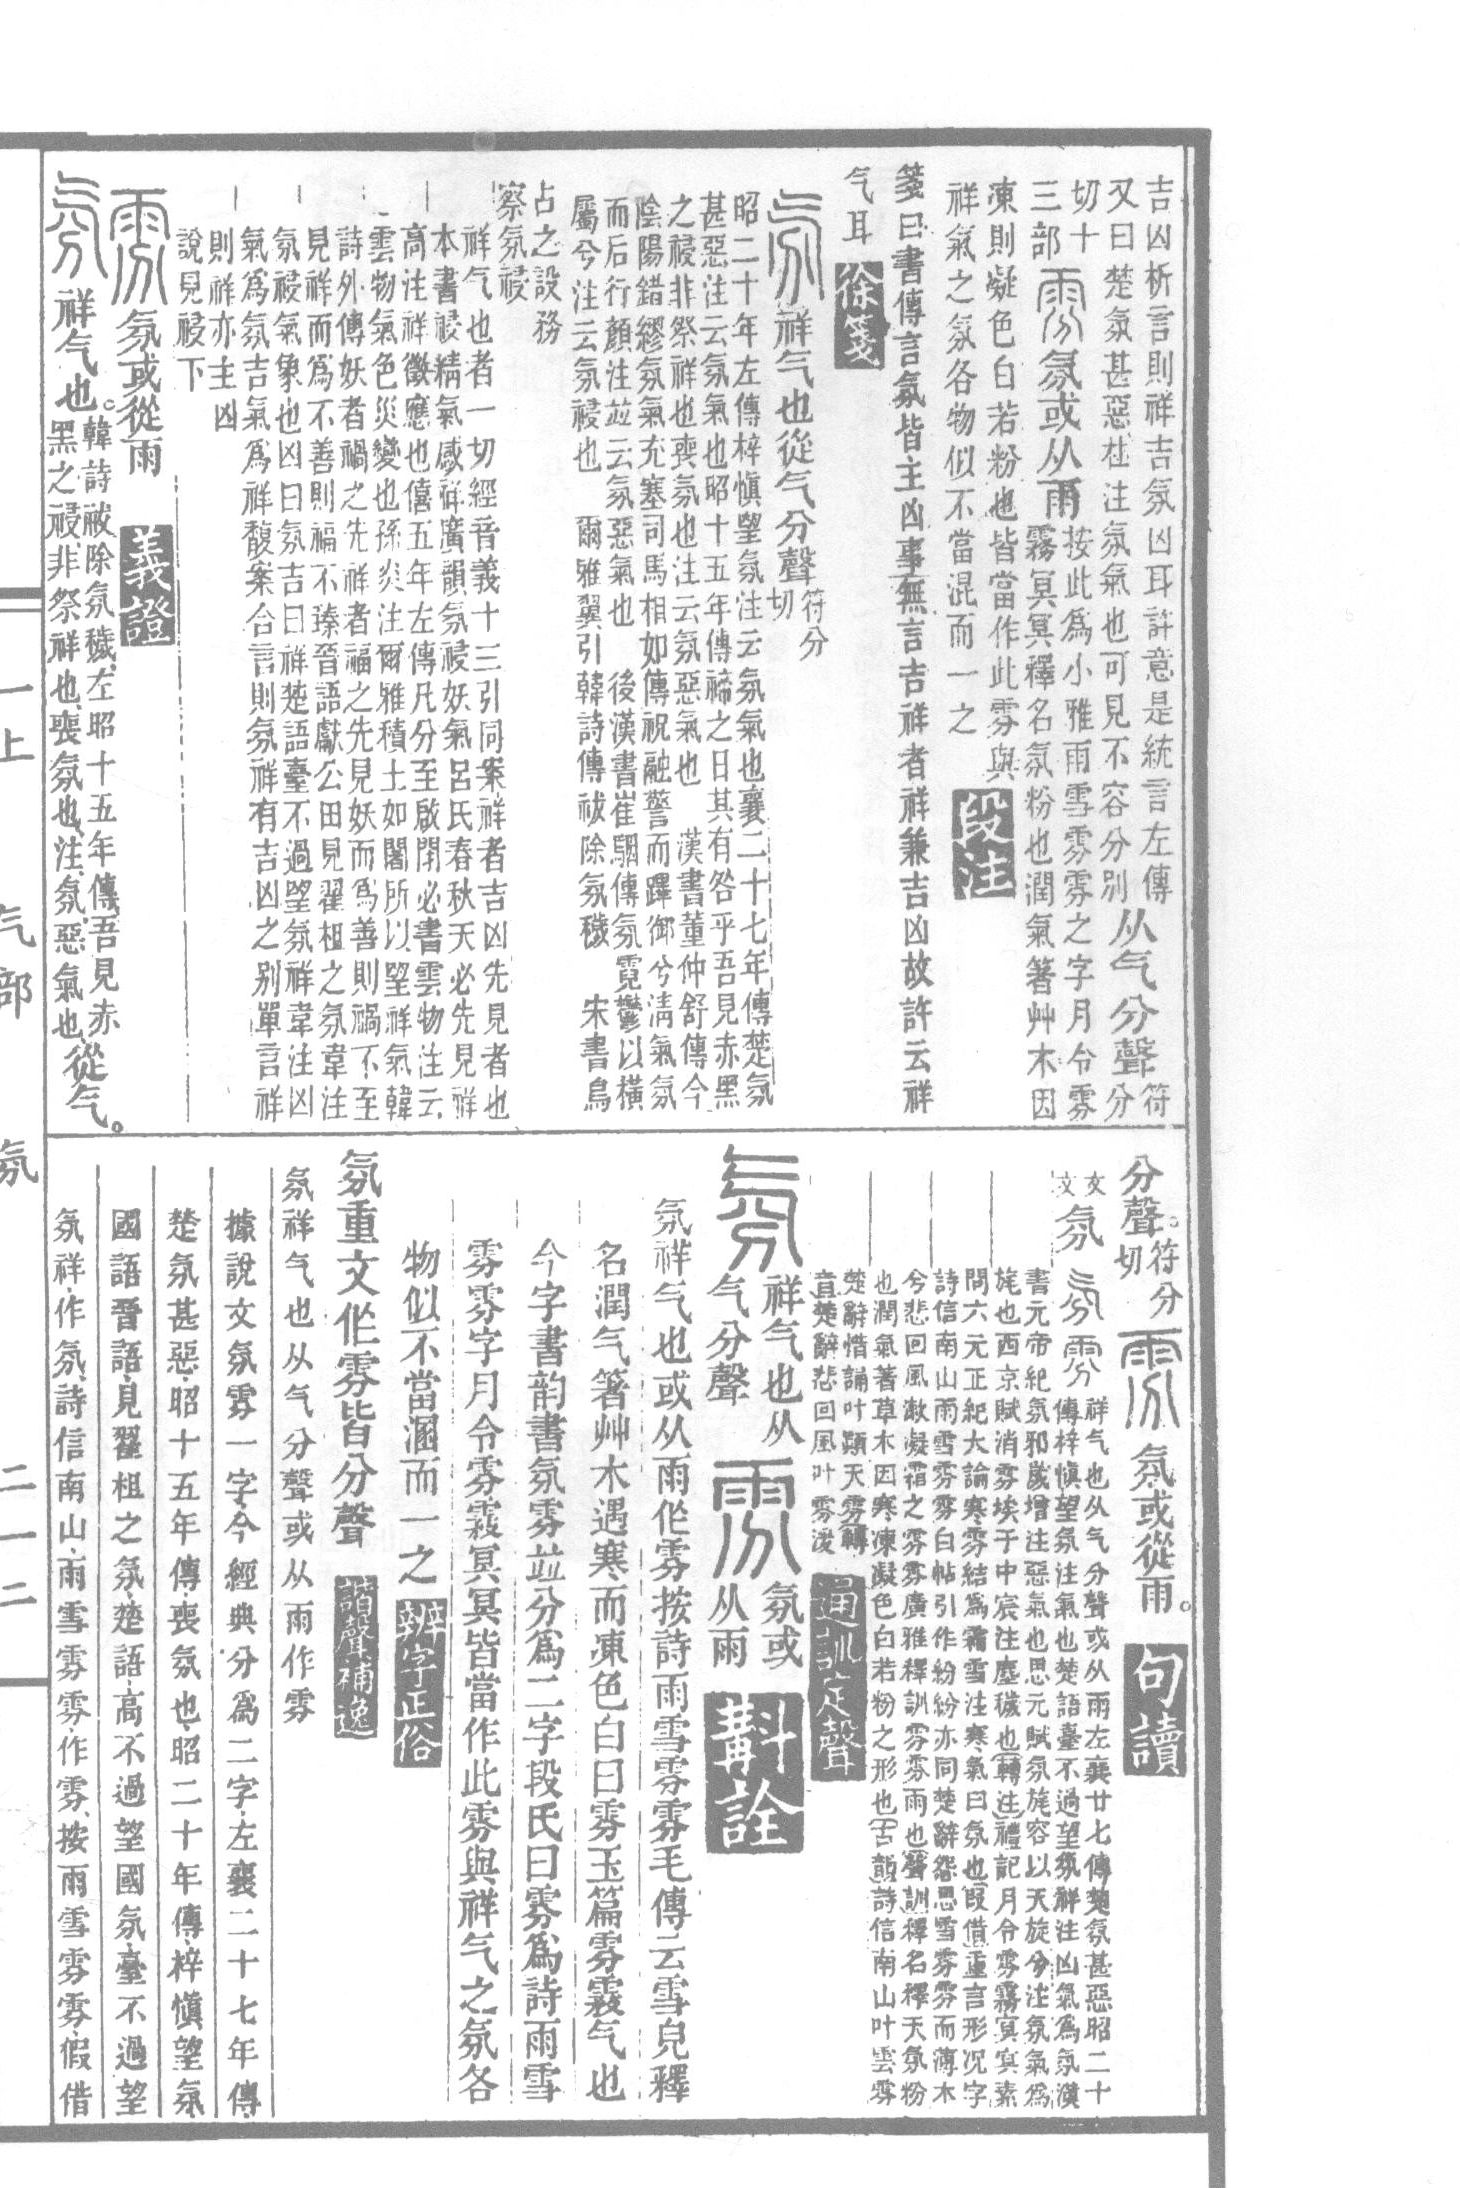 吉凶析言則祥吉氛凶耳許意是統言左傳
又曰楚氛甚惡杜注氛氣也可見不容分別从气分聲符分
切十
三部雰氛或从雨按此爲小雅雨雪雰雰之字月令雰
霧冥冥釋名氛粉也潤氣箸艸木因
凍則凝色白若粉也皆當作此雰與
祥氣之氛各物似不當混而一之段注
箋曰書傳言氛皆主凶事無言吉祥者祥兼吉凶故許云祥
气耳徐箋
氛祥气也從气分聲符分切
昭二十年左傳梓慎望氛注云氛氣也襄二十七年傳楚氛
甚惡注云氛氣也昭十五年傳禘之日其有咎乎吾見赤黑
之祲非祭祥也喪氛也注云氛惡氣也 漢書董仲舒傳今
陰陽錯繆氛氣充塞司馬相如傳祝融警而蹕御兮清氣氛
而后行顏注並云氛惡氣也 後漢書崔駰傳氛霓鬱以橫
屬兮注云氛祲也 爾雅翼引韓詩傳祓除氛穢 宋書鳥
占之設務
察氛祲
祥气也者一切經音義十三引同案祥者吉凶先見者也
本書祲精氣感祥廣韻氛祲妖氣呂氏春秋天必先見祥
高注祥徵應也僖五年左傳凡分至啟閉必書雲物注云
雲物氣色災變也孫炎注爾雅積土如闍所以望祥氣韓
詩外傳妖者禍之先祥者福之先見妖而爲善則禍不至
見祥而爲不善則福不臻晉語獻公田見翟柤之氛韋注
氛祲氣象也凶曰氛吉曰祥楚語臺不過望氛祥韋注凶
氣爲氛吉氣爲祥馥案合言則氛祥有吉凶之別單言祥
則祥亦主凶
說見祲下
雰氛或從雨義證
氛祥气也。韓詩祓除氛穢、左昭十五年傳、吾見赤
黑之祲、非祭祥也、喪氛也、注、氛、惡氣也、從气。
分聲。符分切雰氛或從雨。句讀
文
文氛氛雰祥气也从气分聲或从雨左襄廿七傳楚氛甚惡昭二十
傳梓慎望氛注氣也楚語臺不過望氛祥注凶氣爲氛漢
書元帝紀氛邪歲增注惡氣也思元賦氛旄容以天旋分注氛氣爲
旄也西京賦消雰埃于中宸注塵穢也轉注禮記月令雰霧冥冥素
問六元正紀大論寒雰結爲霜雪注寒氣曰氛也叚借重言形况字
詩信南山雨雪雰雰白帖引作紛紛亦同楚辭怨思雪雰雰而薄木
兮悲回風漱凝霜之雰雰廣雅釋訓雰雰雨也聲訓釋名釋天氛粉
也潤氣著草木因寒凍凝色白若粉之形也古韻詩信南山叶雲雰
楚辭惜誦叶顚天雰轉
音楚辭悲回風叶雰湲通訓定聲
氛祥气也从
气分聲雰氛或
从雨斠詮
氛祥气也或从雨作雰按詩雨雪雰雰毛傳云雪皃釋
名潤气箸艸木遇寒而凍色白曰雰玉篇雰霧气也
今字書韵書氛雰並分爲二字段氏曰雰爲詩雨雪
雰雰字月令雰霧冥冥皆當作此雰與祥气之氛各
物似不當溷而一之辨字正俗
氛重文作雰皆分聲諧聲補逸
氛祥气也从气分聲或从雨作雰
據說文氛雰一字、今經典分爲二字、左襄二十七年傳、
楚氛甚惡、昭十五年傳、喪氛也、昭二十年傳、梓慎望氛、
國語晉語、見翟柤之氛、楚語、高不過望國氛、臺不過望
氛祥、作氛、詩信南山、雨雪雰雰、作雰、按雨雪雰雰、假借
一上 气部 氛 二一二